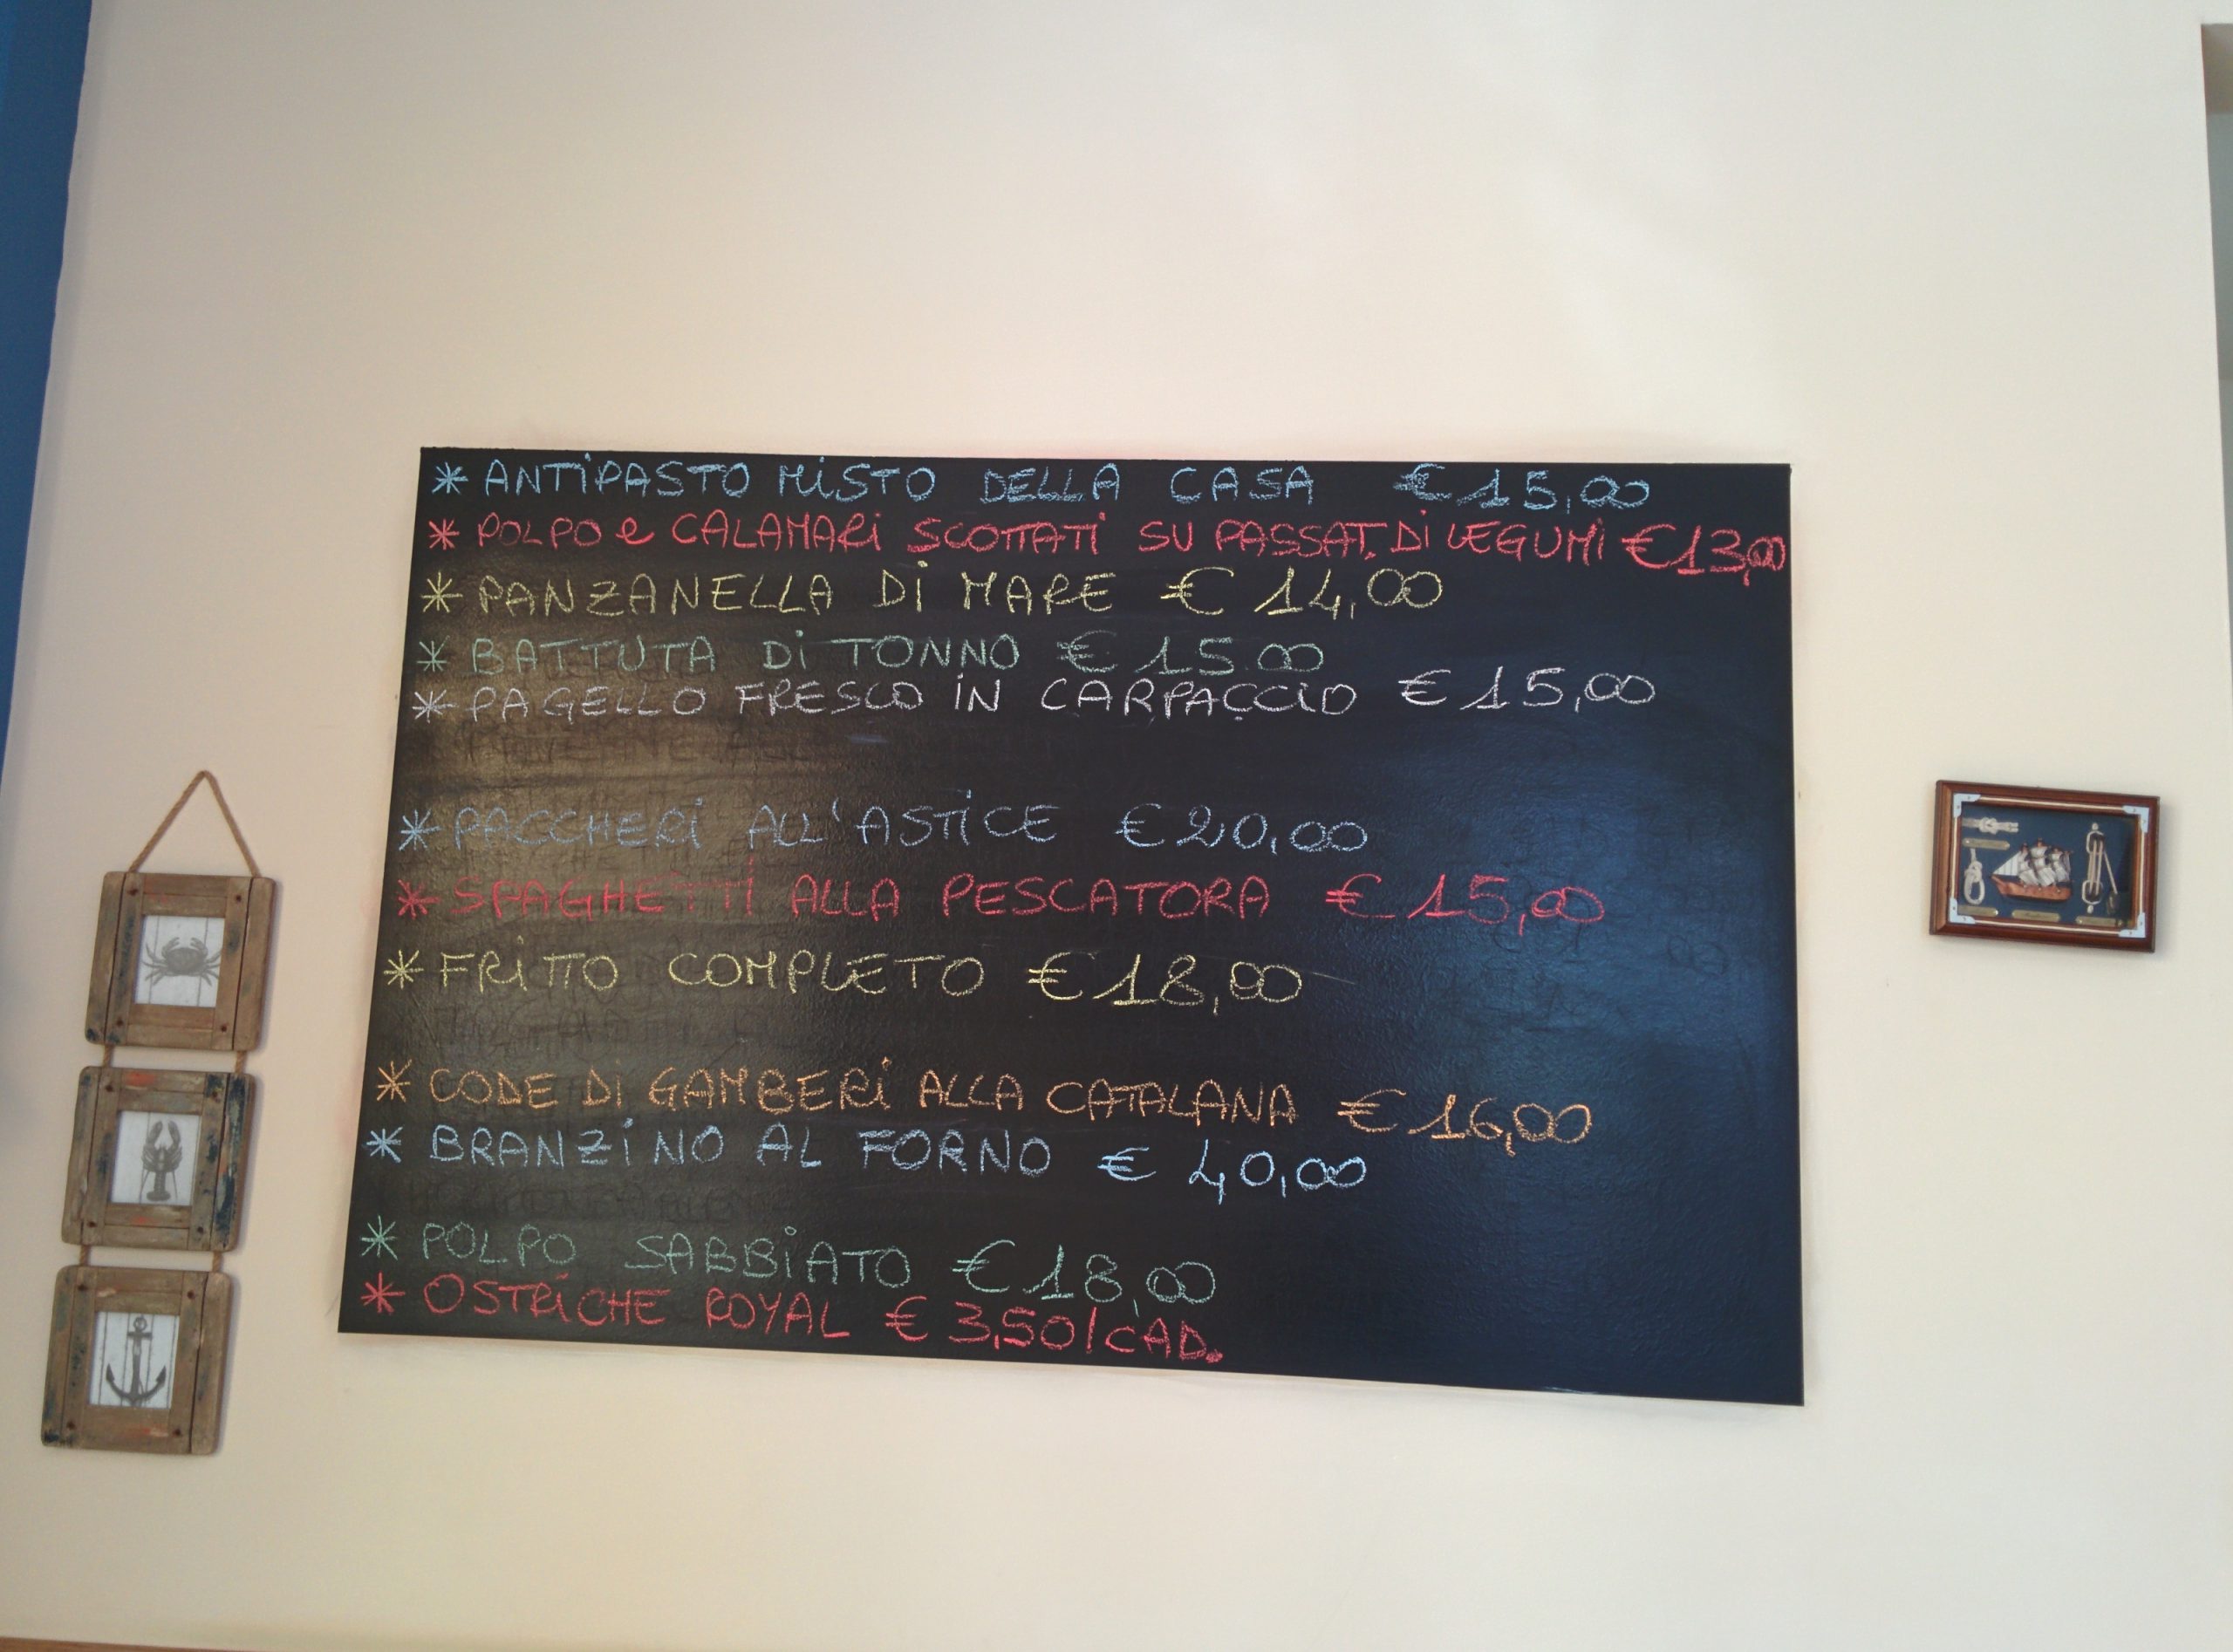 * ANTIPASTO MISTO DELLA CASA € 15,00
* POLPO e CALAMARI SCOTTATI SU PASSAT. DI LEGUMI € 13,00
* PANZANELLA DI MARE € 14,00
* BATTUTA DI TONNO € 15.00
* PAGELLO FRESCO IN CARPACCIO € 15,00
* PACCHERI ALL'ASTICE € 20,00
* SPAGHETTI ALLA PESCATORA € 15,00
* FRITTO COMPLETO € 18,00
* CODE DI GAMBERI ALLA CATALANA € 16,00
* BRANZINO AL FORNO € 40,00
* POLPO SABBIATO € 18,00
* OSTRICHE ROYAL € 3,50/CAD.